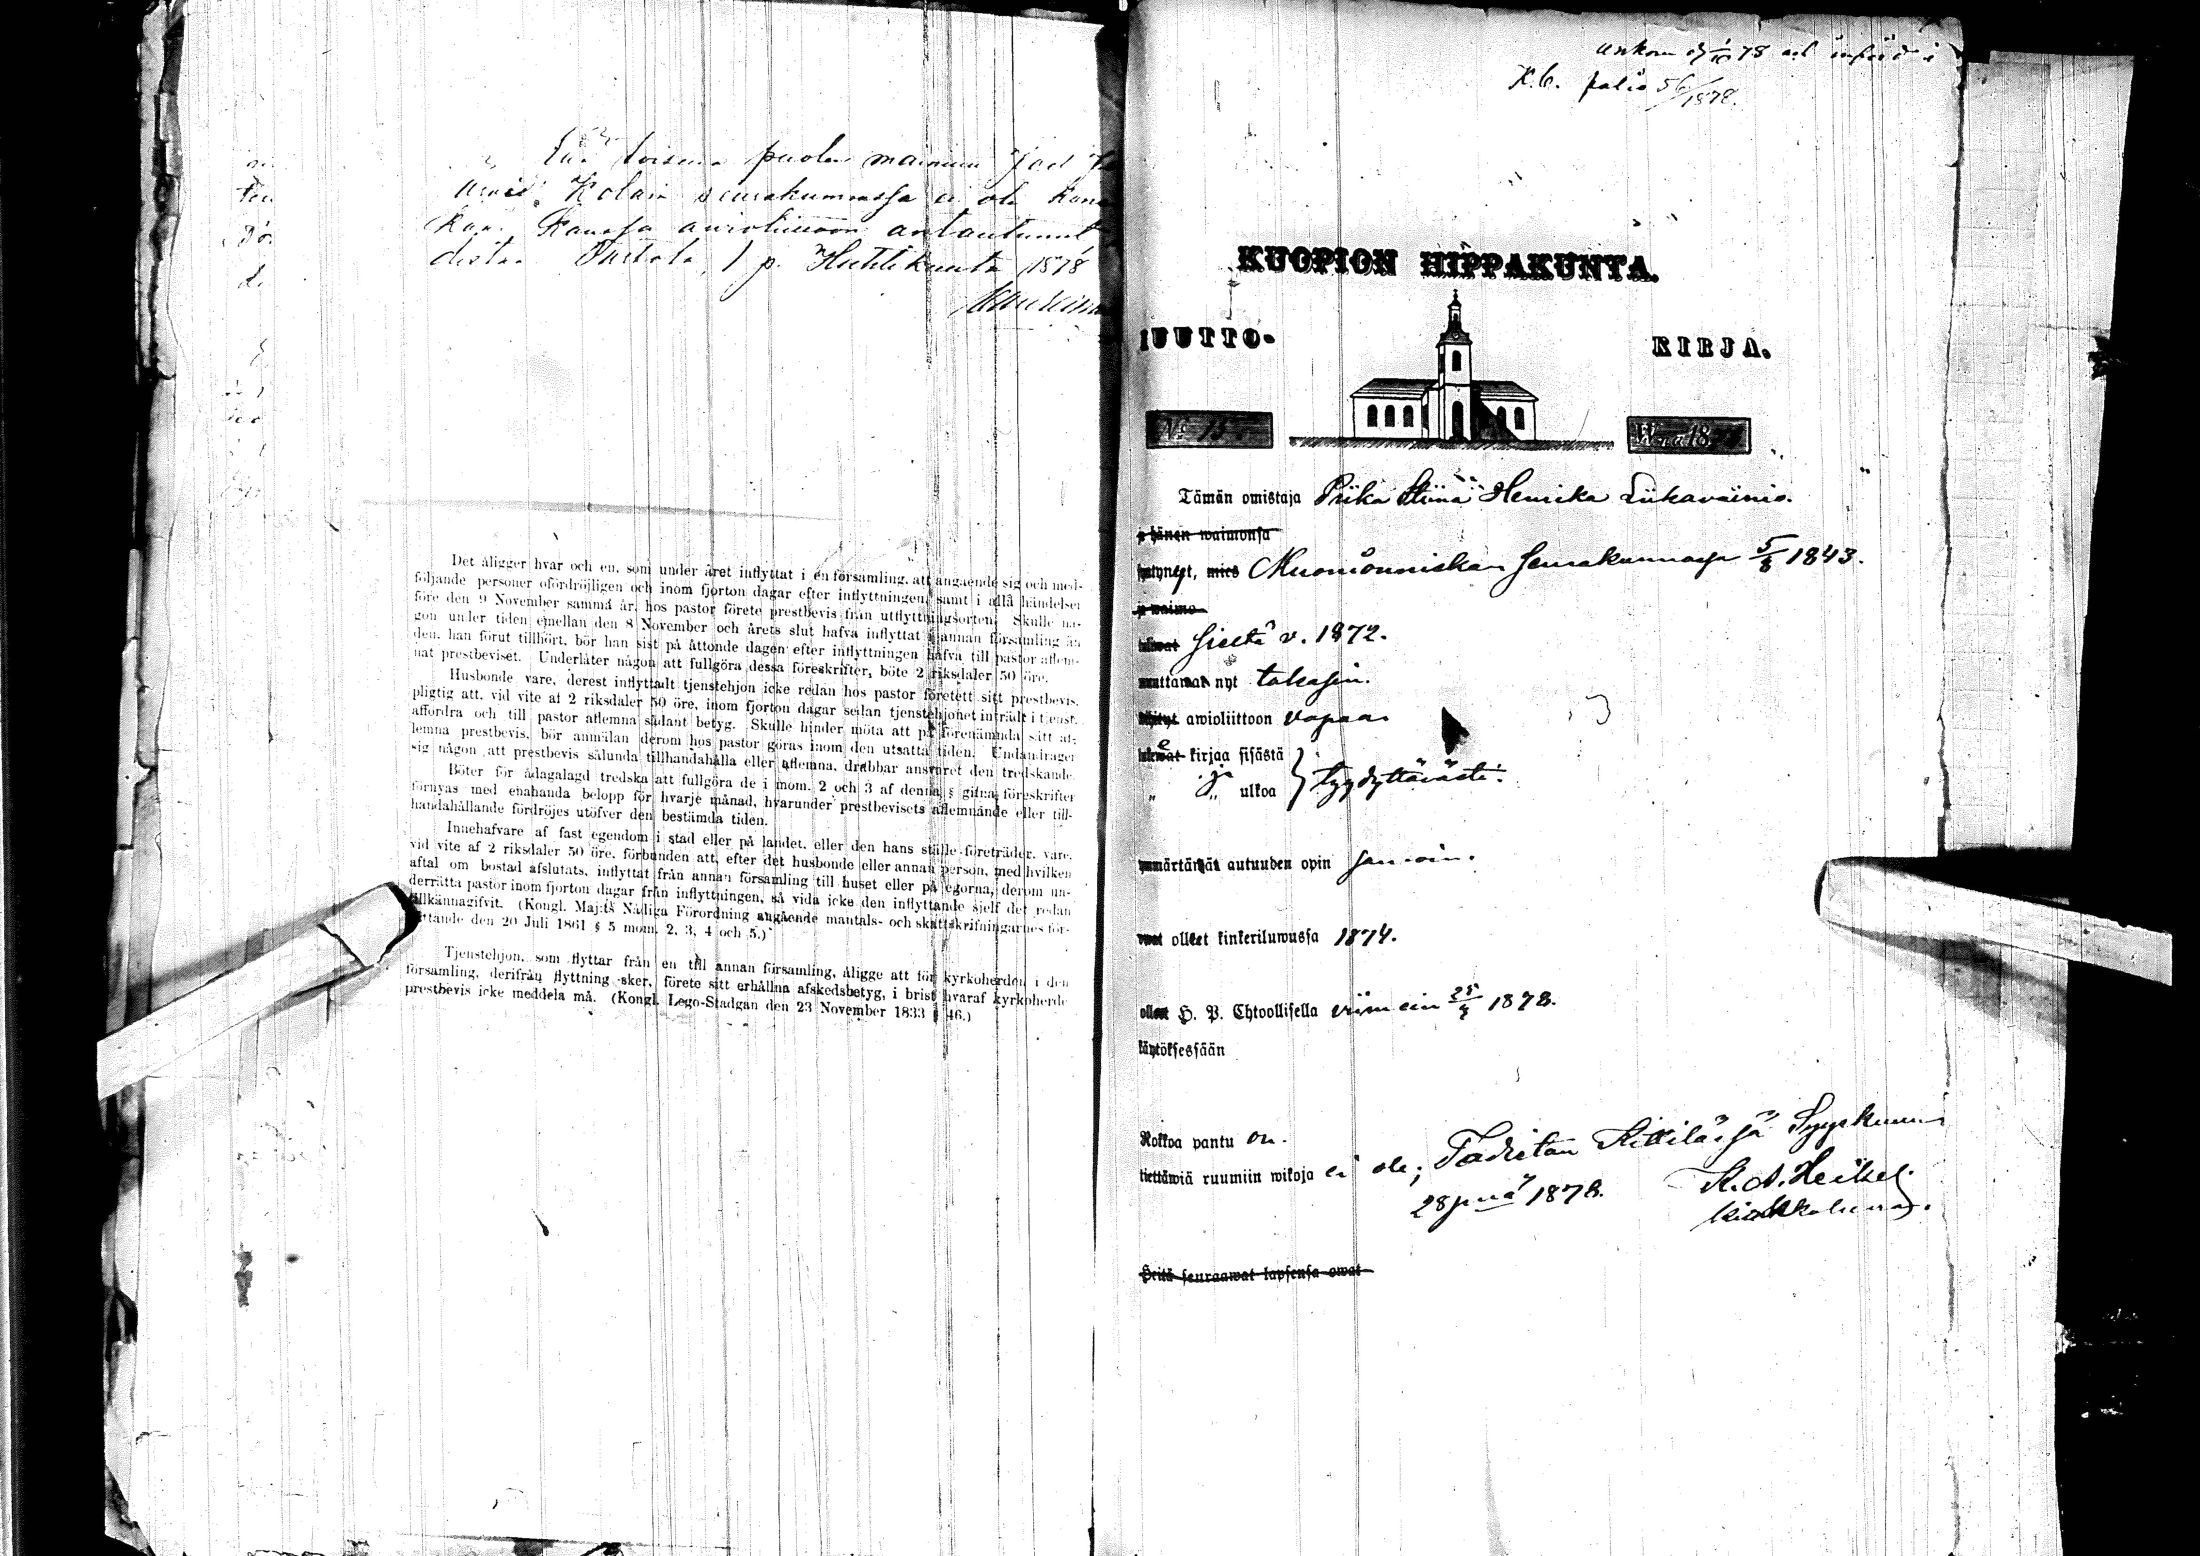 toisena puolen
Kolarin seurakunnassa ei ole
Kanssa avioliittoon antautunut
1 p. Huhtikuuta 1878
Det åligger hvar och en, som under året inflyttat i en församling, att angående sig och med-
följande personer ofördröjligen och inom fjorton dagar efter inflyttningen, samt i alla händelser
före den 9 November samma år, hos pastor förete prestbevis från utflyttningsorten. Skulle nå-
gon under tiden emellan den 8 November och årets slut hafva inflyttat i annan församling än
den, han förut tillhört, bör han sist på åttonde dagen efter inflyttningen hafva till pastor aflem-
nat prestbeviset. Underlåter någon att fullgöra dessa föreskrifter, böte 2 riksdaler 50 öre.
Husbonde vare, derest inflyttadt tjenstehjon icke redan hos pastor företett sitt prestbevis,
pligtig att, vid vite af 2 riksdaler 50 öre, inom fjorton dagar sedan tjenstehjonet inträdt i tjenst,
affordra och till pastor aflemna sådant betyg. Skulle hinder möta att på förenämnda sätt af-
lemna prestbevis, bör anmälan derom hos pastor göras inom den utsatta tiden. Undandrager
sig någon att prestbevis sålunda tillhandahålla eller aflemna, drabbar ansvaret den tredskande.
Böter för ådagalagd tredska att fullgöra de i mom. 2 och 3 af denna § gifna föreskrifter
förnyas med enahanda belopp för hvarje månad, hvarunder prestbevisets aflemnande eller till-
handahållande fördröjes utöfver den bestämda tiden.
Innehafvare af fast egendom i stad eller på landet, eller den hans ställe företräder, vare,
vid vite af 2 riksdaler 50 öre, förbunden att, efter det husbonde eller annan person, med hvilken
aftal om bostad afslutats, inflyttat från annan församling till huset eller på egorna, derom un-
derrätta pastor inom fjorton dagar från inflyttningen, så vida icke den inflyttande sjelf det redan
tillkännagifvit. (Kongl. Maj:ts Nådiga Förordning angående mantals- och skattskrifningarnes för-
rättande den 20 Juli 1861 § 5 mom. 2, 3, 4 och 5.)
Tjenstehjon, som flyttar från en till annan församling, åligge att för kyrkoherden i den
församling, derifrån flyttning sker, förete sitt erhållna afskedsbetyg, i brist hvaraf kyrkoherde
prestbevis icke meddela må. (Kongl. Lego-Stadgan den 23 November 1833 § 46.)
införd i
K.b. folio 56/1878.
KUOPION HIPPAKUNTA.
MUUTTO-
KIRJA.
No 15
W:na 18
Tämän omistaja Prika Stiina Henrika Liikavainio.
ja hänen waimonsa
syntynyt, mies Muonionniskan seurakunnassa 5/8 1843.
ja waimo
tulewat sieltä v. 1872.
muuttawat nyt takasin.
awioliittoon vapaa
lukewat kirjaa sisästä
„ ja „ ulkoa } tyydyttävästi.
ymmärtäwät autuuden opin samoin.
owat olleet kinkeriluwussa 1874.
olleet H. P. Ehtoollisella viimein 25/8 1878.
käytöksessään
Rokkoa pantu on.
tiettäwiä ruumiin wikoja ei ole; Todistan Kittilässä Syyskuun
28 p:nä 1878. K. A. Heikel.
kirkkoherra.
Heitä seuraawat lapsensa owat